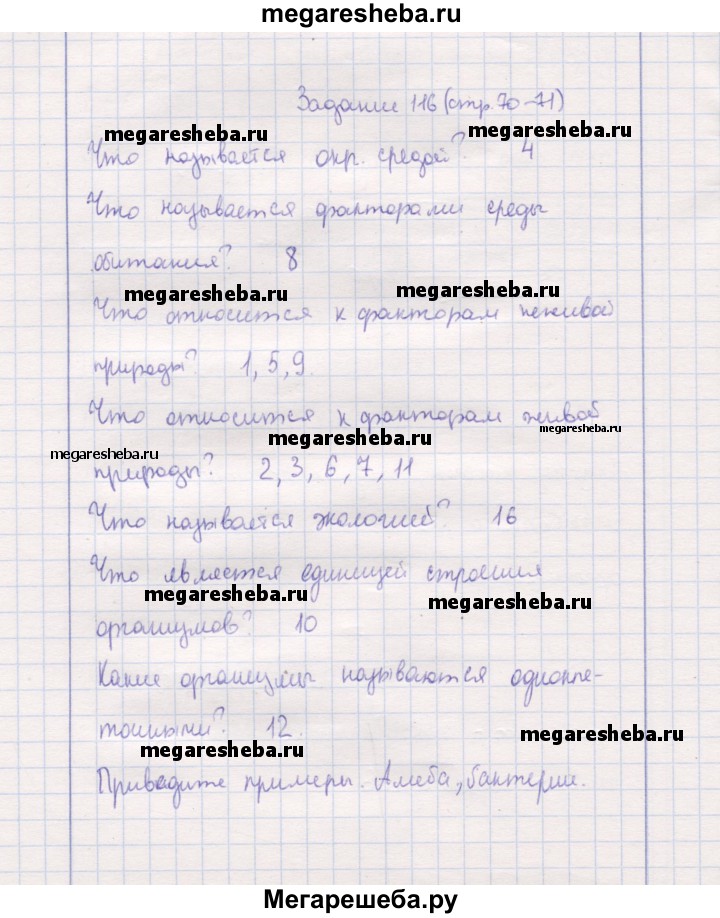 megaresheba.ru
Задание 116 (стр. 70-71)
megaresheba.ru
megaresheba.ru
Что называется окр. средой? 4
Что называется факторами среды
обитания? 8
megaresheba.ru
megaresheba.ru
Что относится к факторам неживой
природы? 1, 5, 9.
Что относится к факторам живой
megaresheba.ru
megaresheba.ru
megaresheba.ru
природы? 2, 3, 6, 7, 11
Что называется экологией? 16
Что является единицей строения
megaresheba.ru
megaresheba.ru
организмов? 10
Какие организмы называются однокле-
точными? 12.
megaresheba.ru
megaresheba.ru
Приведите примеры. Амеба, бактерии.
Мегарешеба.ру